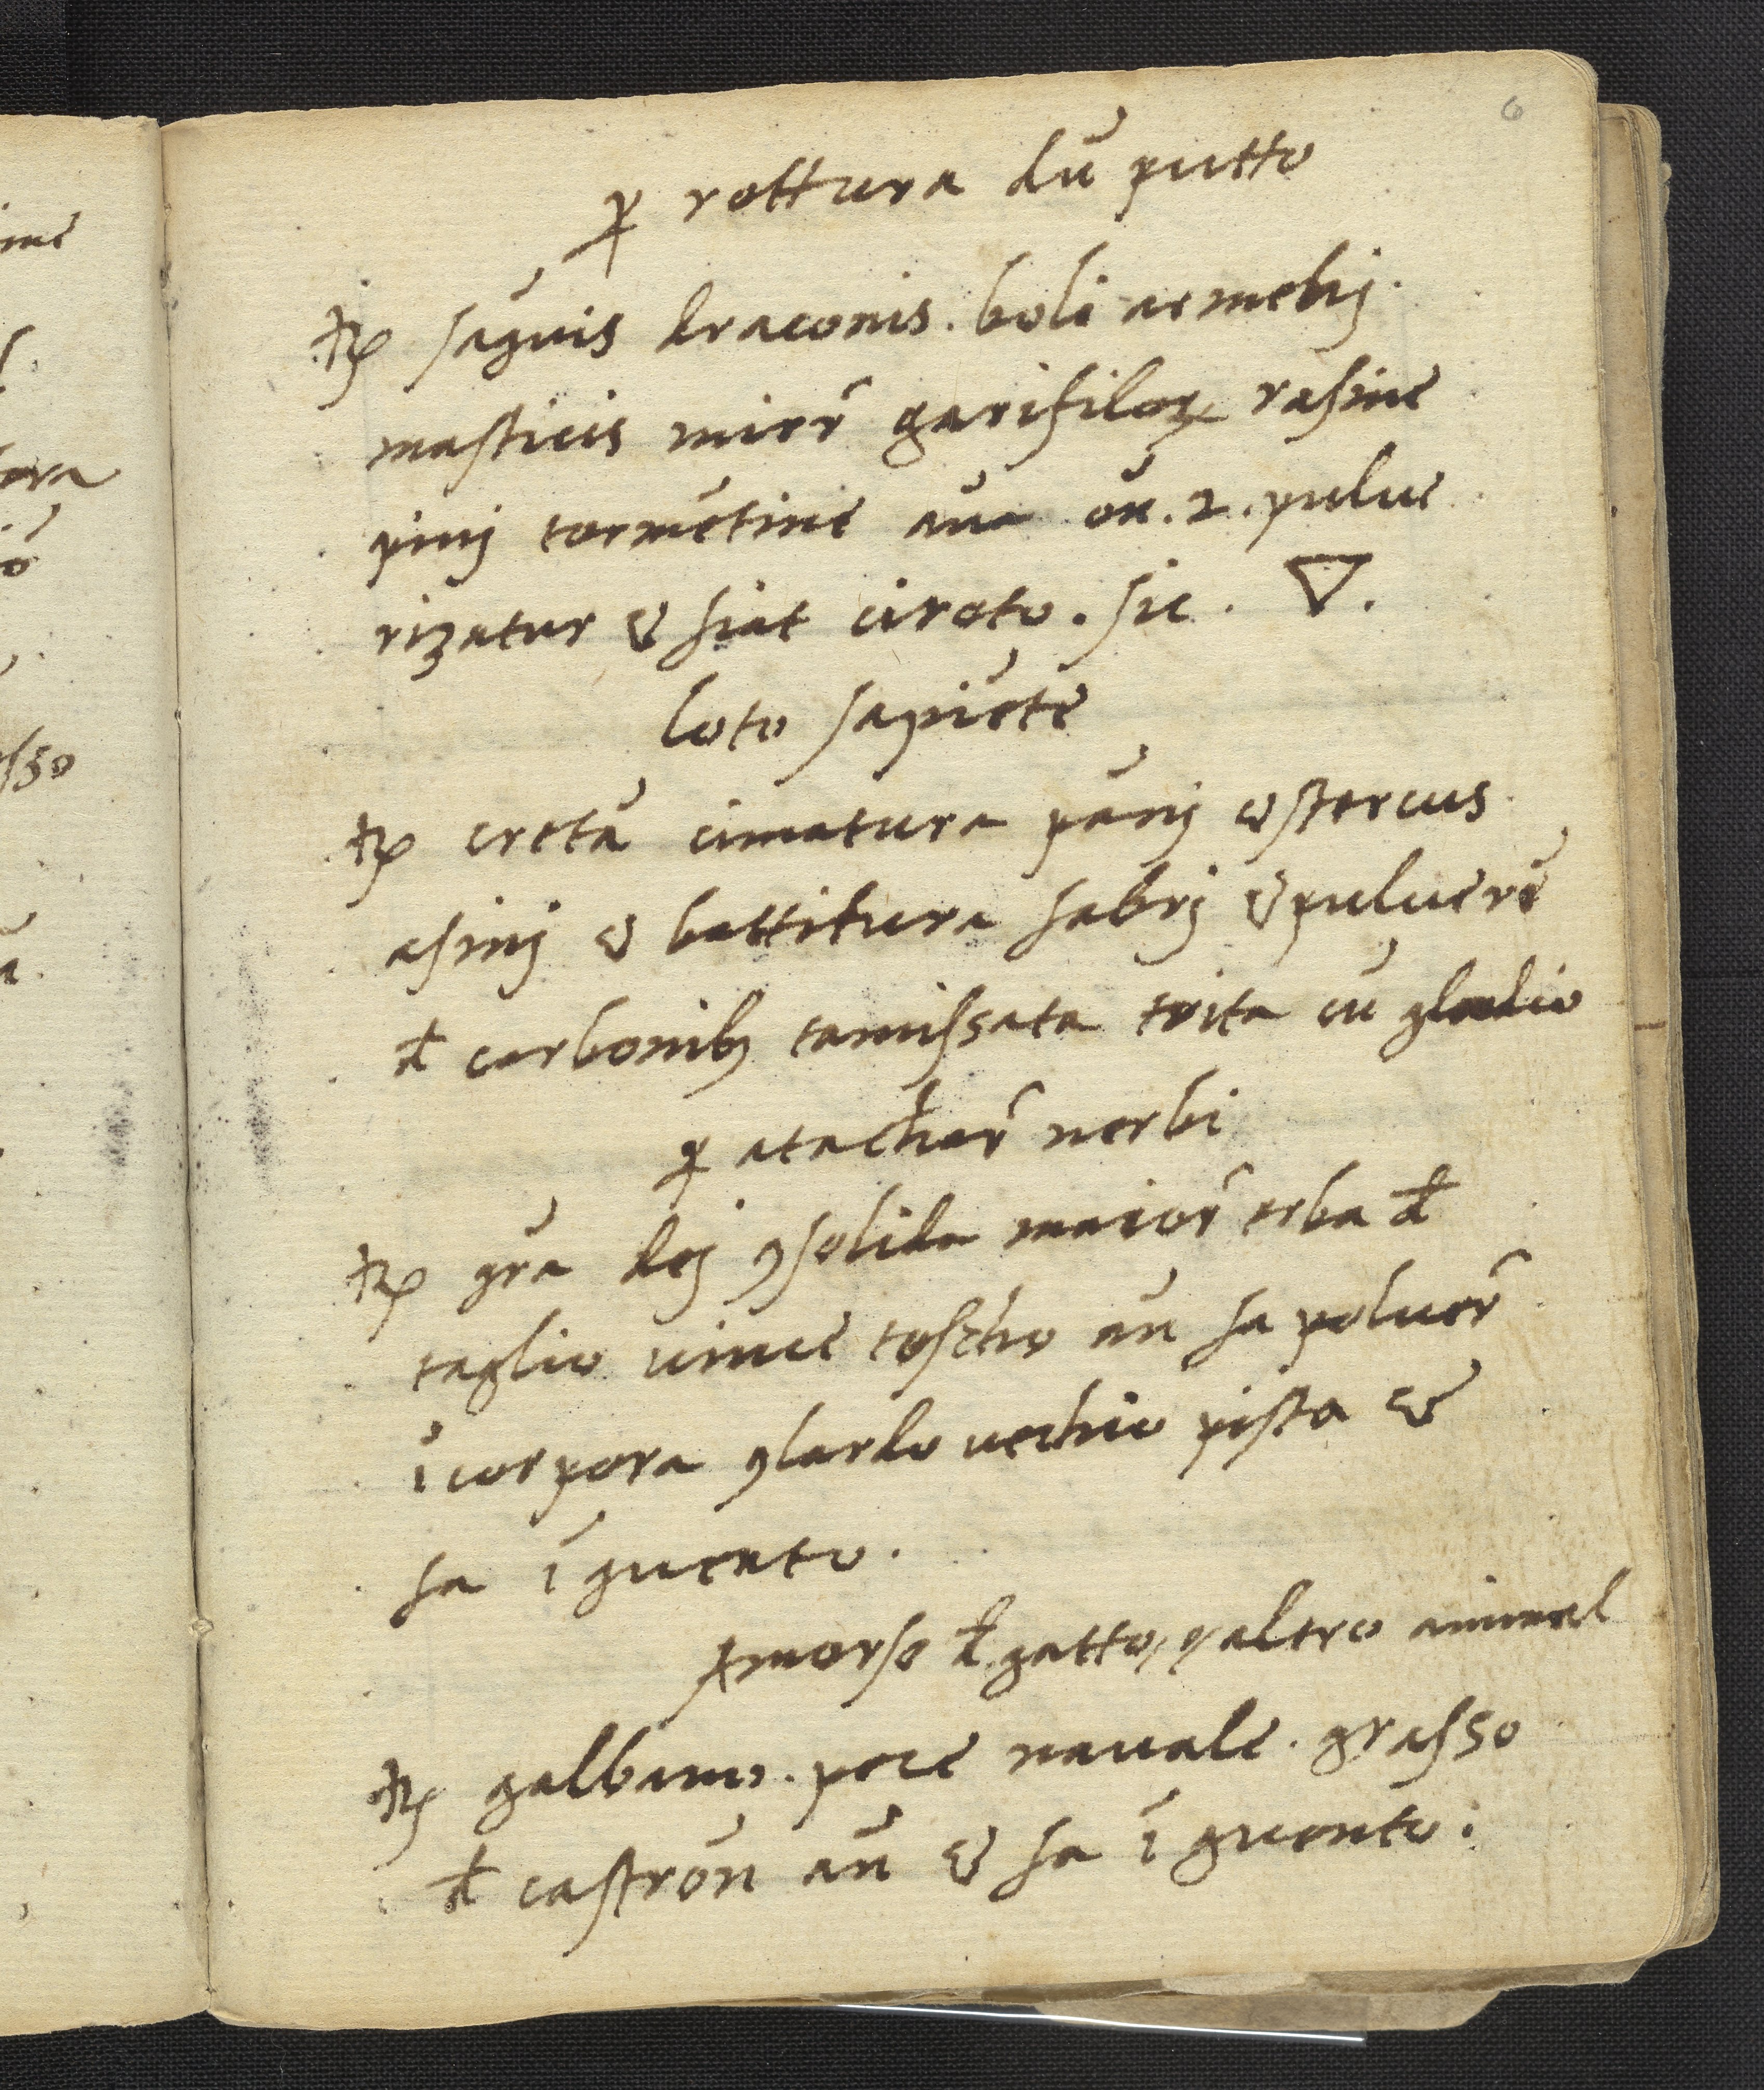 6
ꝑ rottura dũ putto
℞ sãguis draconis . boli armebij .
masticis mirr̃ garifiloꝝ rasine
pinj tormẽtine ana oñ . 2 . pulue
rizatur & fiat ciroto . sic . ▽ .
loto sapiẽte
℞ cretã cimatura pãnj & stercus
asinj & battitura fabrj & puluerẽ
đ carbonibꝫ tamissata trita cũ gladio
ꝑ atachar̃ nerbi
℞ gr̃a dej ꝯsolida maior̃ erba đ
taglio uince toscho añ fa poluer̃
ĩcorpora ꝯ lardo uechio pista &
fa ĩguento .
ꝑ morso đ gatto, o altro animal
℞ galbano . pece nauale . grasso
đ castrõn añ & fa ĩguento .
ime
ora
õ
sso